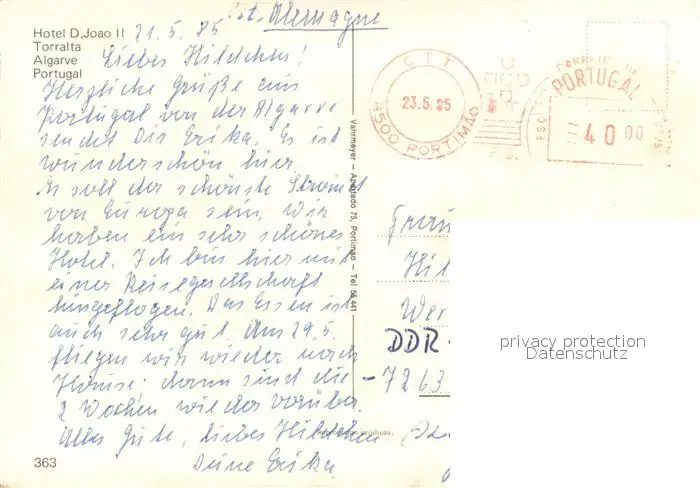 Hotel D.Joao II
Torralta
Algarve
Portugal
21.5.85
Allemagne
Liebes Hildchen!
Herzliche Grüße aus
Portugal von der Algarve
sendet Dir Erika. Es ist
wunderschön hier.
Es soll der schönste Strand
von Europa sein. Wir
haben ein sehr schönes
Hotel. Ich bin hier mit
einer Reisegesellschaft
hingeflogen. Das Essen ist
auch sehr gut. Am 29.5.
fliegen wir wieder nach
Hause, dann sind die
2 Wochen wieder vorüber.
Alles Gute, Liebes Hildchen
Deine Erika
363
Vahrmeyer — Apartado 75, Portimao — Tel 56 441
CTT
23.5.85
8500 PORTIMÃO
CORREIO
PORTUGAL
40 00
Frau
Hil
Wer
DDR-
-7263
privacy protection
Datenschutz